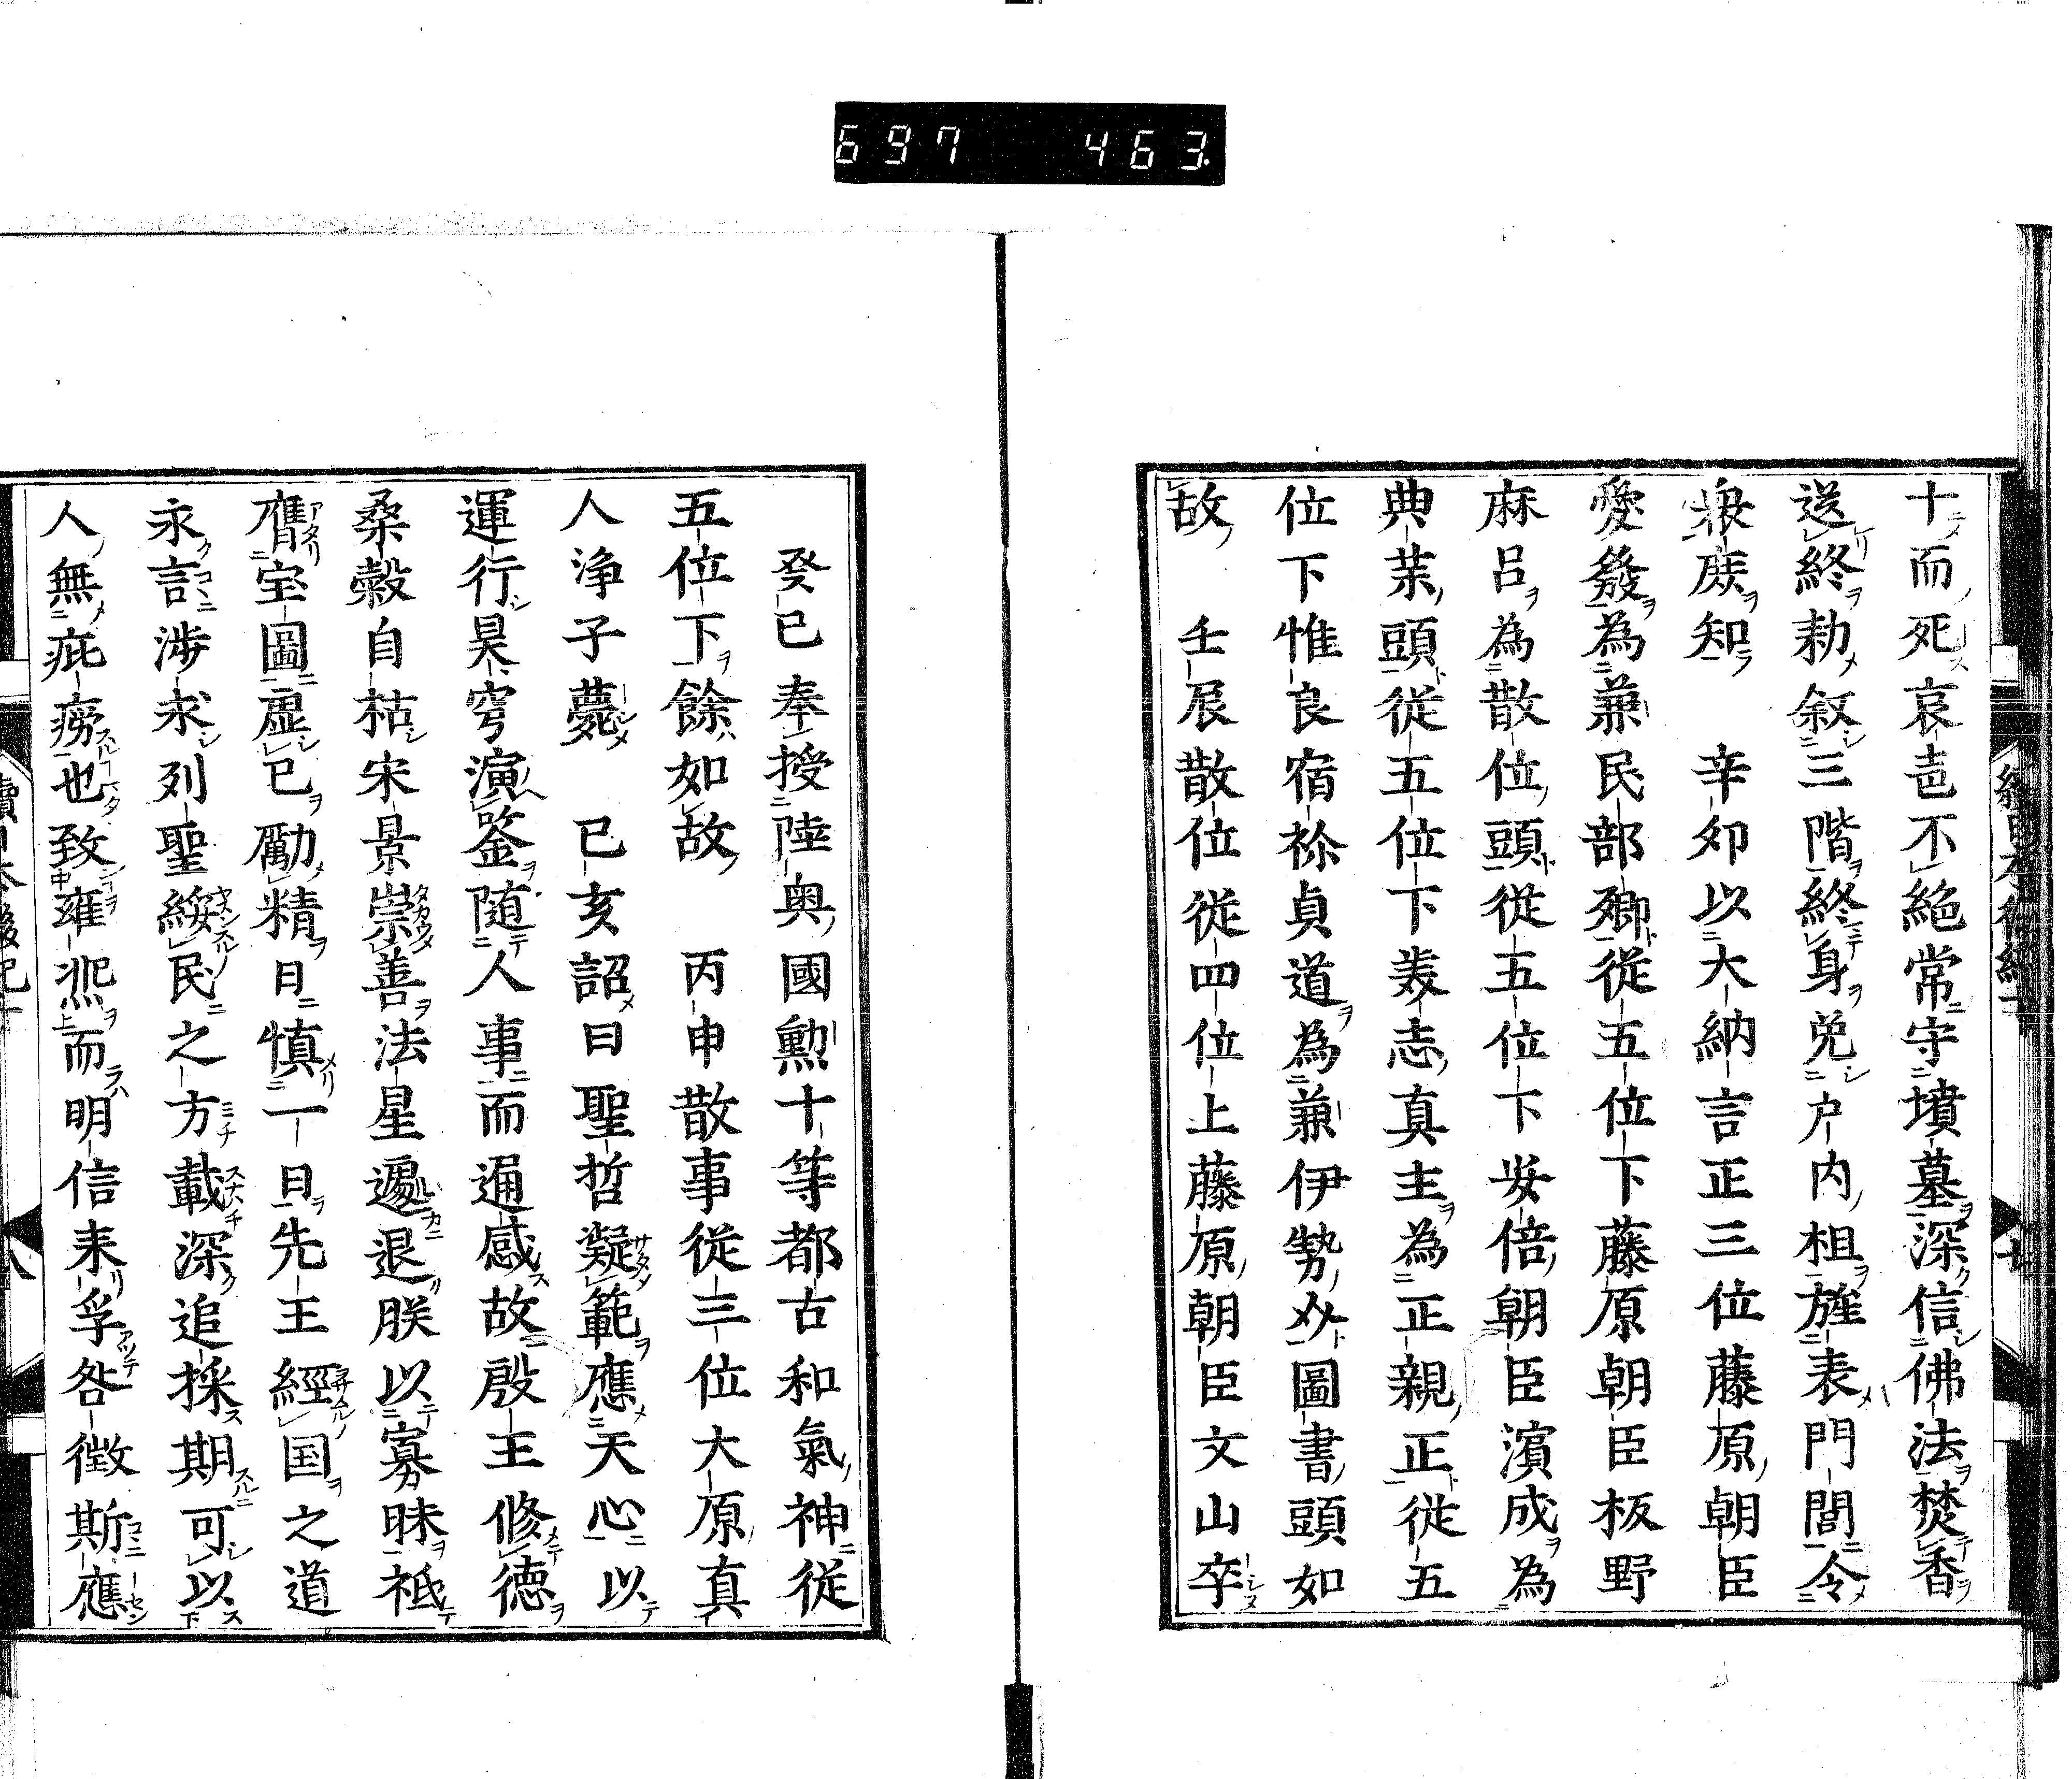 697 463.
十而死哀㐵不絶常守墳墓深信佛法焚香
送終勅叙三階終身免戸内租旌表門閭令
衆庶知 辛卯以大納言正三位藤原朝臣
愛發為兼民部卿從五位下藤原朝臣板野
麻呂為散位頭從五位下安倍朝臣濱成為
典薬頭從五位下美志真主為正親正從五
位下惟良宿祢貞道為兼伊勢介圖書頭如
故 壬辰散位從四位上藤原朝臣文山卒
癸已奉授陸奥國勲十等都古和氣神從
五位下餘如故 丙申散事從三位大原真
人浄子薨 已亥詔曰聖哲凝範應天心以
運行昊穹演鑒随人事而通感故殷王修德
桑榖自枯宋景崇善法星遽退朕以寡昧祗
膺宝圖虚已勵精日慎一日先王經国之道
永言渉求列聖綏民之方載深追採期可以
人無疵癘也致雍熙而明信未孚咎徵斯應
七
八